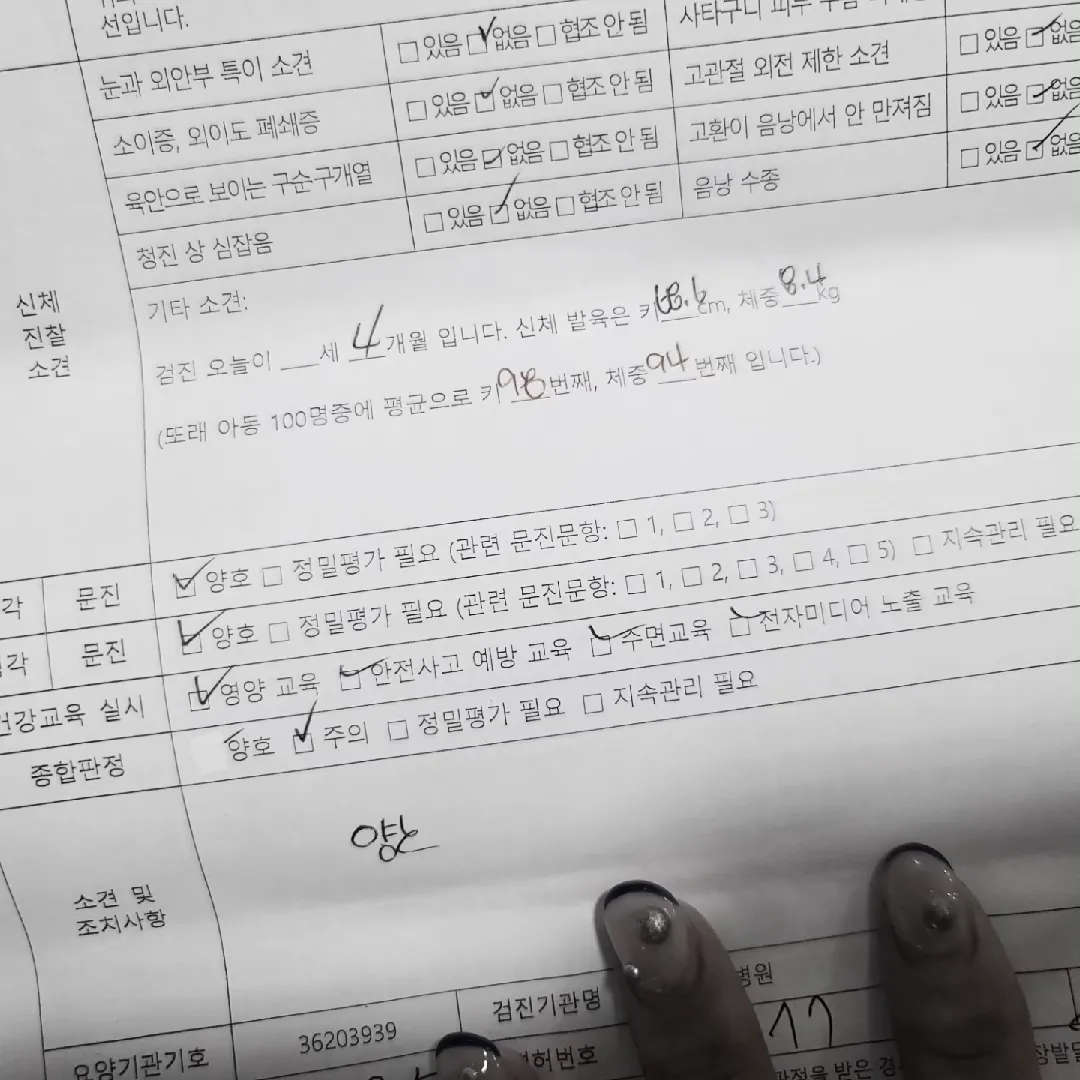 선입니다.
눈과 외안부 특이 소견 □ 있음 ☑ 없음 □ 협조 안 됨
소이증, 외이도 폐쇄증 □ 있음 ☑ 없음 □ 협조 안 됨 고관절 외전 제한 소견 □ 있음 ☑ 없음
육안으로 보이는 구순구개열 □ 있음 ☑ 없음 □ 협조 안 됨 고환이 음낭에서 안 만져짐 □ 있음 ☑ 없음
청진 상 심잡음 □ 있음 ☑ 없음 □ 협조 안 됨 음낭 수종 □ 있음 ☑ 없음
신체
진찰
소견
기타 소견:
검진 오늘이 __세 4 개월 입니다. 신체 발육은 키 68.6 cm, 체중 8.4 kg
(또래 아동 100명중에 평균으로 키 98 번째, 체중 94 번째 입니다.)
각 문진 ☑ 양호 □ 정밀평가 필요 (관련 문진문항: □ 1, □ 2, □ 3)
각 문진 ☑ 양호 □ 정밀평가 필요 (관련 문진문항: □ 1, □ 2, □ 3, □ 4, □ 5) □ 지속관리 필요
건강교육 실시 ☑ 영양 교육 ☑ 안전사고 예방 교육 ☑ 수면교육 ☑ 전자미디어 노출 교육
종합판정 양호 ☑ 주의 □ 정밀평가 필요 □ 지속관리 필요
소견 및
조치사항
요양기관기호 36203939 검진기관명 병원
허번호
판정을 받은 경